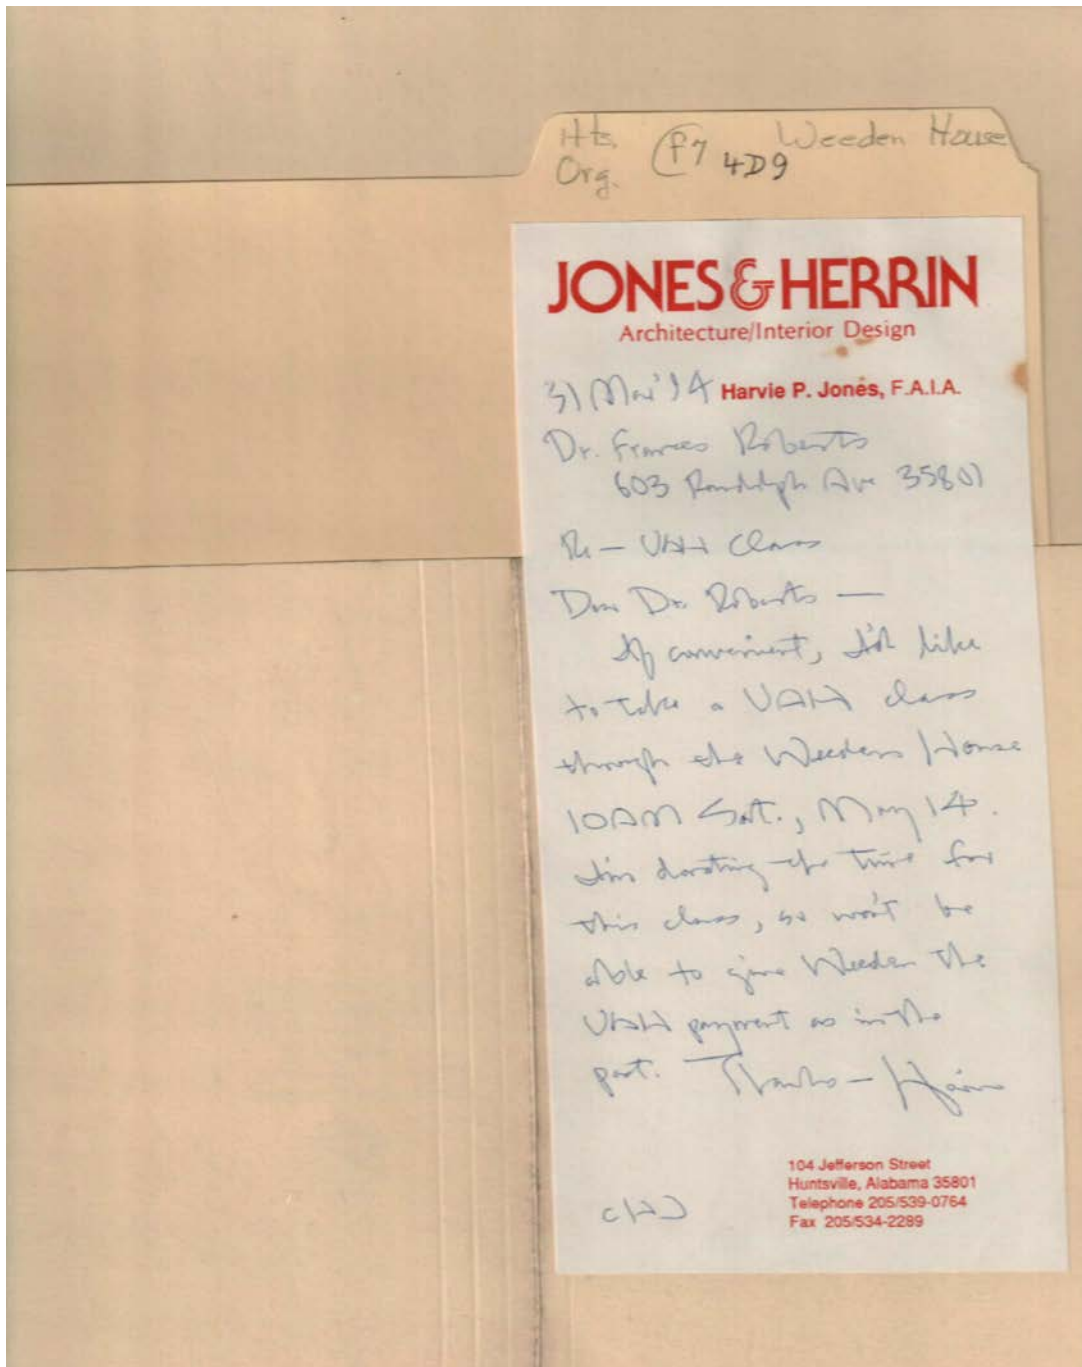 Hts. (F7 4D9 Weeden House
Org.
JONES & HERRIN
Architecture/Interior Design
31 Mar '94 Harvie P. Jones, F.A.I.A.
Dr. Frances Roberts
603 Randolph Ave 35801
Re – UAH Class
Dear Dr. Roberts —
If convenient, I'd like
to take a UAH class
through the Weeden House
10AM Sat., May 14.
I'm donating the time for
this class, so won't be
able to give Weeden the
UAH payment as in the
past. Thanks – Harvie
104 Jefferson Street
Huntsville, Alabama 35801
Telephone 205/539-0764
Fax 205/534-2289